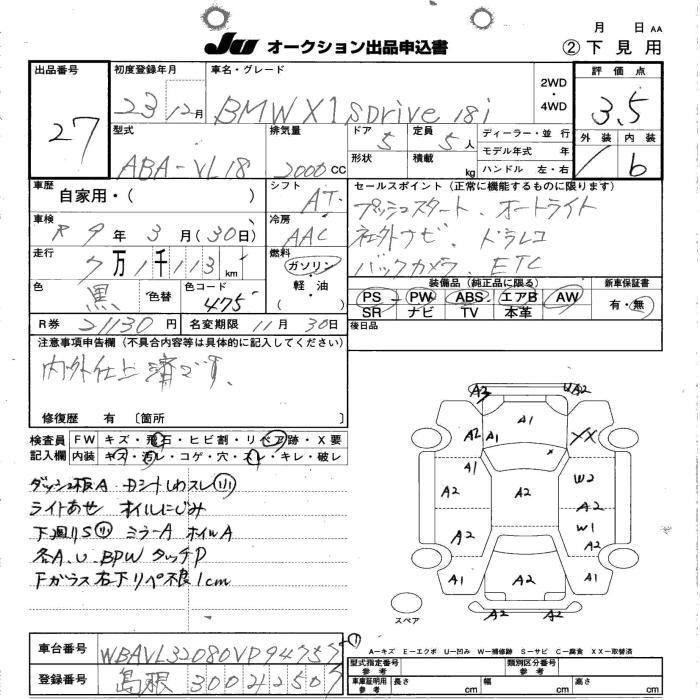 JU オークション出品申込書
月 日 AA
② 下見用
出品番号
27
初度登録年月
23 12月
車名・グレード
BMW X1 SDrive 18i
2WD
・
4WD
評価点
3.5
外装 内装
b
型式
ABA-VL18
排気量
2000 CC
ドア
5
定員
5人
形状
積載
kg
ディーラー・並行
モデル年式 年
ハンドル 左・右
車歴
自家用・( )
シフト
AT
セールスポイント(正常に機能するものに限ります)
プッシュスタート、オートライト
社外ナビ、ドラレコ
バックカメラ、ETC
車検
R 9年 3月(30日)
冷房
AAC
走行
7万1千113 km
燃料
ガソリン
軽油
( )
色
黒
色替
色コード
475
装備品(純正品に限る)
PS PW ABS エアB AW
SR ナビ TV 本革
新車保証書
有・無
R券 21130円
名変期限 11月 30日
後日品
注意事項申告欄(不具合内容等は具体的に記入してください)
内外仕上済です。
修復歴 有 〔箇所 〕
検査員
記入欄
FW キズ・飛石・ヒビ割・リペア跡・X要
内装 キズ・汚レ・コゲ・穴・スレ・キレ・破レ
ダッシュ板A カジ汁しわスレ
ライトあせ オイルにじみ
下廻りS ミラーA ホイルA
各A、U、BPW タッチP
Fガラス右下リペ不良1cm
A3 UA2
A1
A2 A1 XX
A1
A2 A2 W2
A2
A2 W1
A2
A1 A2 A1
A2 A2
スペア
A-キズ E-エクボ U-凹み W-補修跡 S-サビ C-腐食 XX-取替済
車台番号 WBAVL32080VP94757
登録番号 島根 300 そ 2507
型式指定番号
参考
類別区分番号
参考
車庫証明用
参考
長さ cm 幅 cm 高さ cm